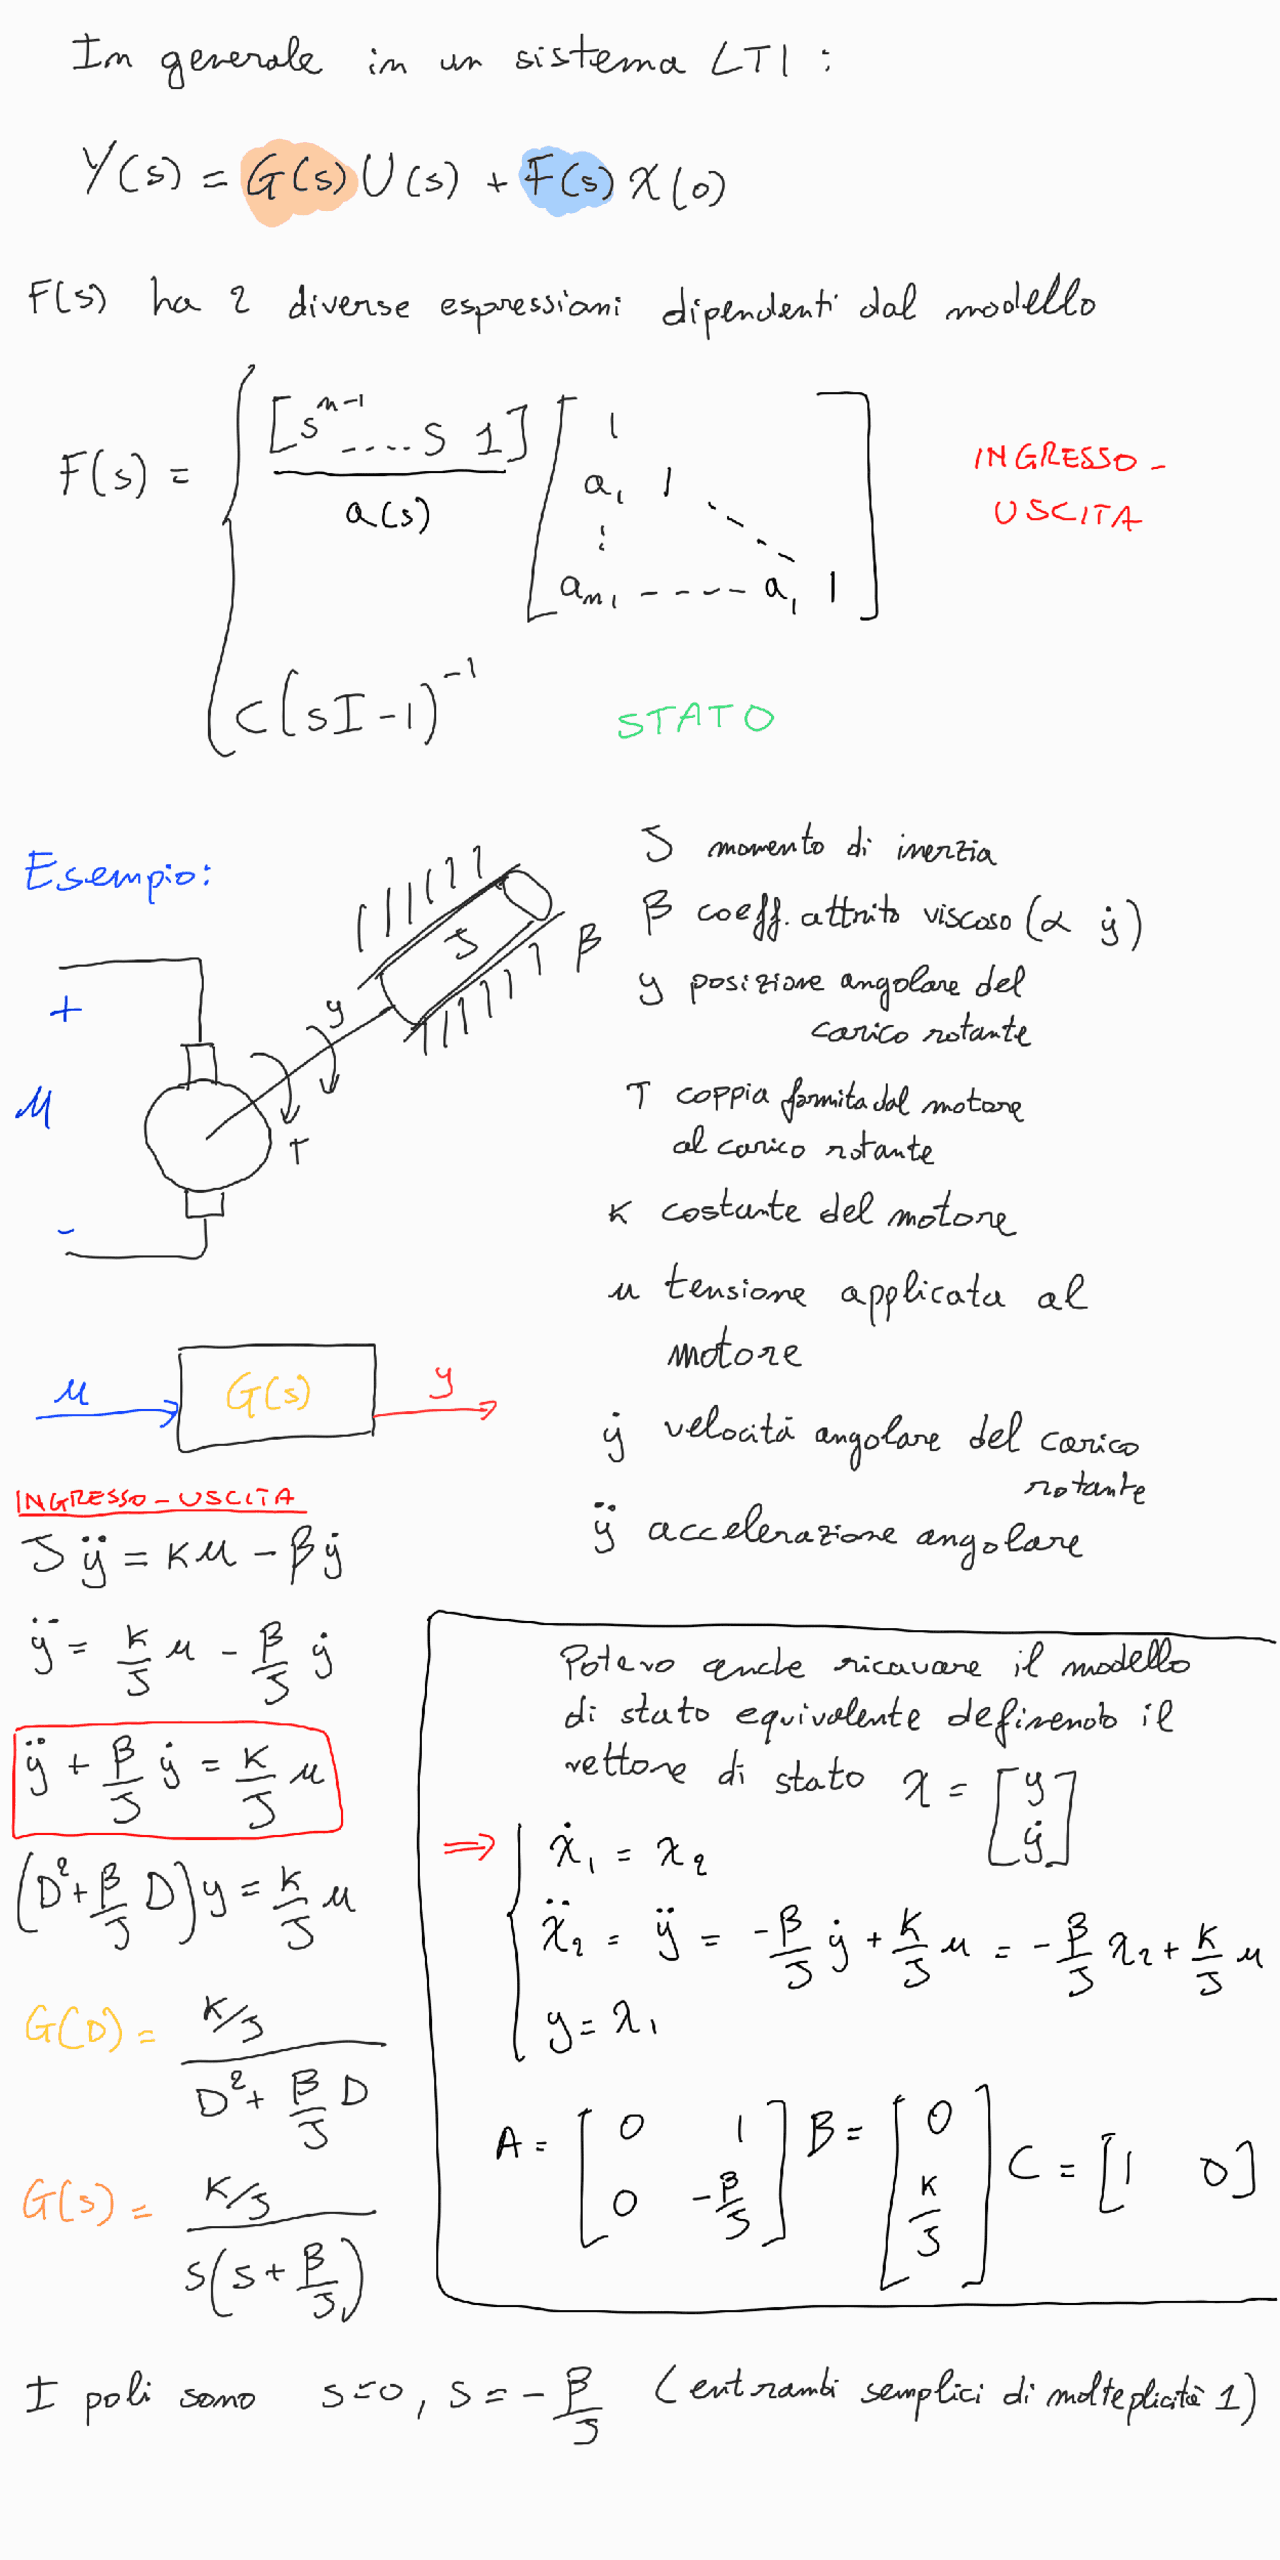 In generale in un sistema LTI :
Y(s) = G(s) U(s) + F(s) x(0)
F(s) ha 2 diverse espressioni dipendenti dal modello
F(s) = { [s^{n-1} .... s 1] / a(s) [ 1
a₁ 1
⋮ ⋱
a_{n-1} ----- a₁ 1 ]
INGRESSO-
USCITA
C(sI-1)^{-1} STATO
Esempio:
J
β
y
T
+
u
-
J momento di inerzia
β coeff. attrito viscoso (α ẏ)
y posizione angolare del
carico rotante
T coppia fornita dal motore
al carico rotante
K costante del motore
u tensione applicata al
motore
ẏ velocità angolare del carico
rotante
ÿ accelerazione angolare
u G(s) y
INGRESSO-USCITA
J ÿ = Ku - βẏ
ÿ = K/J u - β/J ẏ
ÿ + β/J ẏ = K/J u
(D² + β/J D) y = K/J u
G(D) = K/J / (D² + β/J D)
G(s) = K/J / s(s + β/J)
Potevo anche ricavare il modello
di stato equivalente definendo il
vettore di stato x = [y ẏ]
⇒ { ẋ₁ = x₂
ẍ₂ = ÿ = -β/J ẏ + K/J u = -β/J x₂ + K/J u
y = x₁
A = [0 1 0 -β/J] B = [0 K/J] C = [1 0]
I poli sono s=0, s = -β/J (entrambi semplici di molteplicità 1)